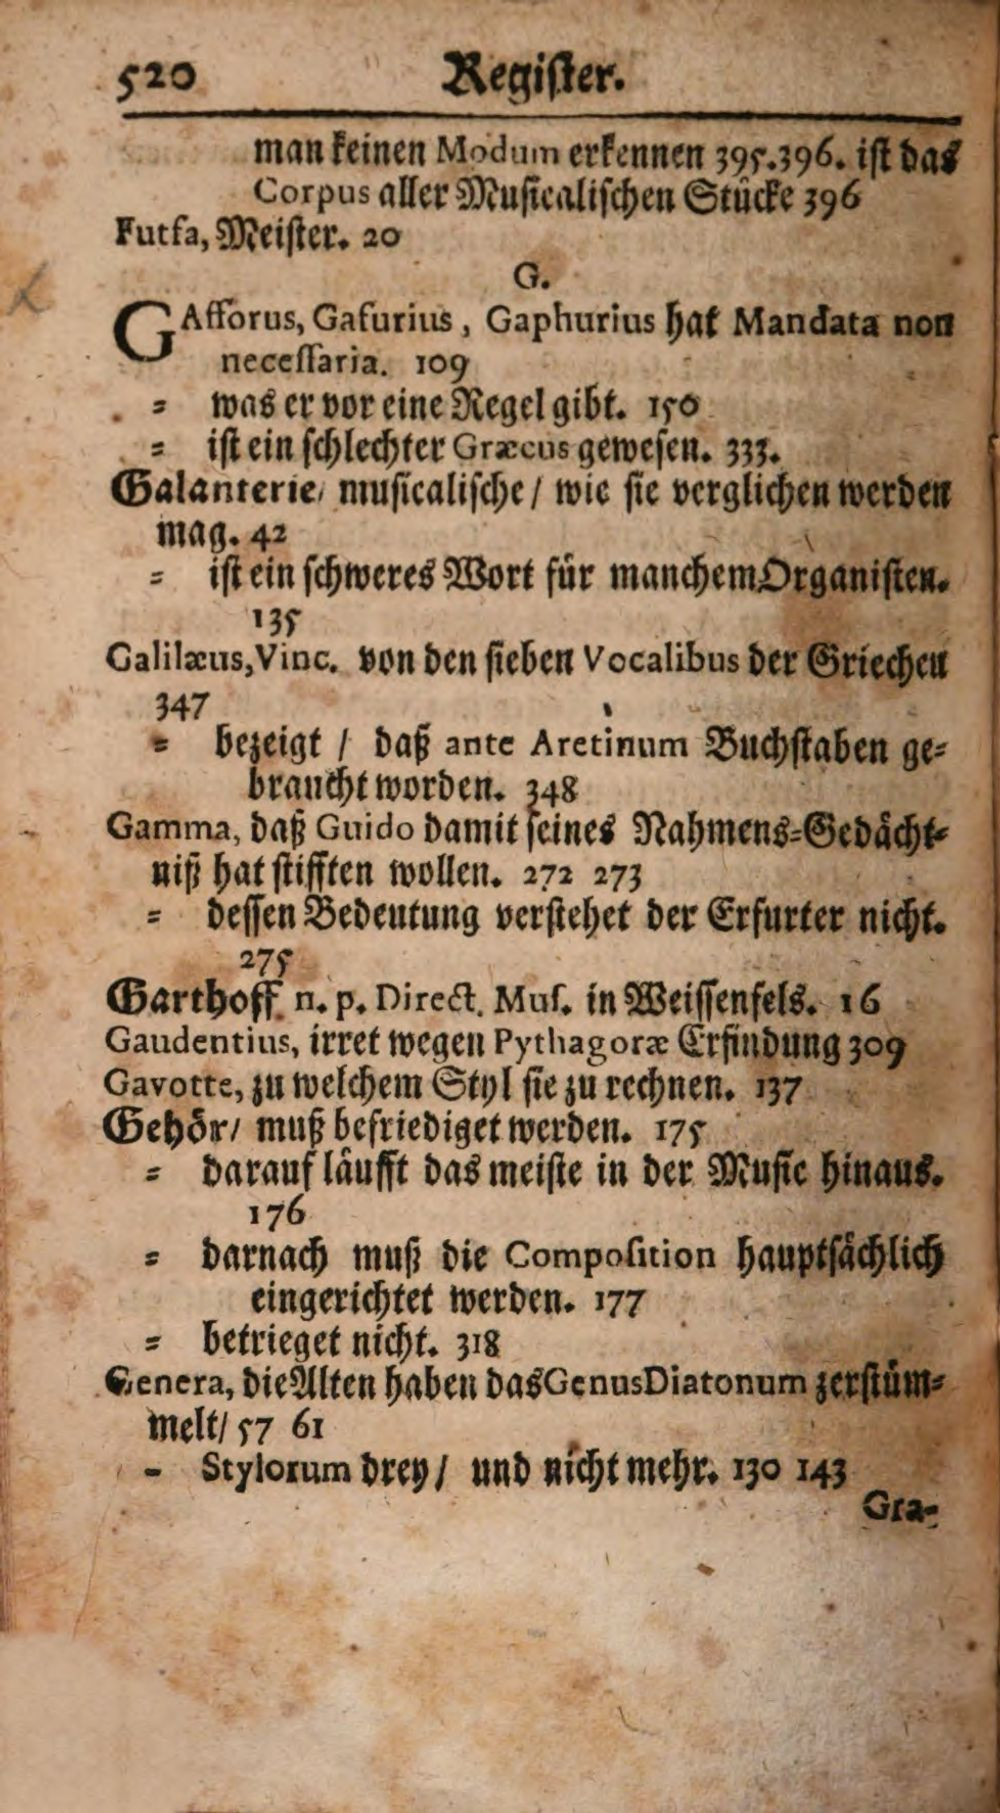 520 Register.
man keinen Modum erkennen 395.396. ist das
Corpus aller Musicalischen Stücke 396
Futsa, Meister. 20
G.
GAfforus, Gafurius, Gaphurius hat Mandata non
necessaria. 109
= was er vor eine Regel gibt. 150
= ist ein schlechter Græcus gewesen. 333.
Galanterie/ musicalische/ wie sie verglichen werden
mag. 42
= ist ein schweres Wort für manchem Organisten.
135
Galilæus, Vinc. von den sieben Vocalibus der Griechen
347
= bezeigt / daß ante Aretinum Buchstaben ge=
braucht worden. 348
Gamma, daß Guido damit seines Nahmens=Gedächt=
niß hat stifften wollen. 272 273
= dessen Bedeutung verstehet der Erfurter nicht.
275
Garthoff. n. p. Direct. Mus. in Weissenfels. 16
Gaudentius, irret wegen Pythagoræ Erfindung 309
Gavotte, zu welchem Styl sie zu rechnen. 137
Gehör/ muß befriediget werden. 175
= darauf läufft das meiste in der Music hinaus.
176
= darnach muß die Composition hauptsächlich
eingerichtet werden. 177
= betrieget nicht. 318
Genera, die Alten haben das Genus Diatonum zerstüm=
melt/ 57 61
- Stylorum drey/ und nicht mehr. 130 143
Gra-